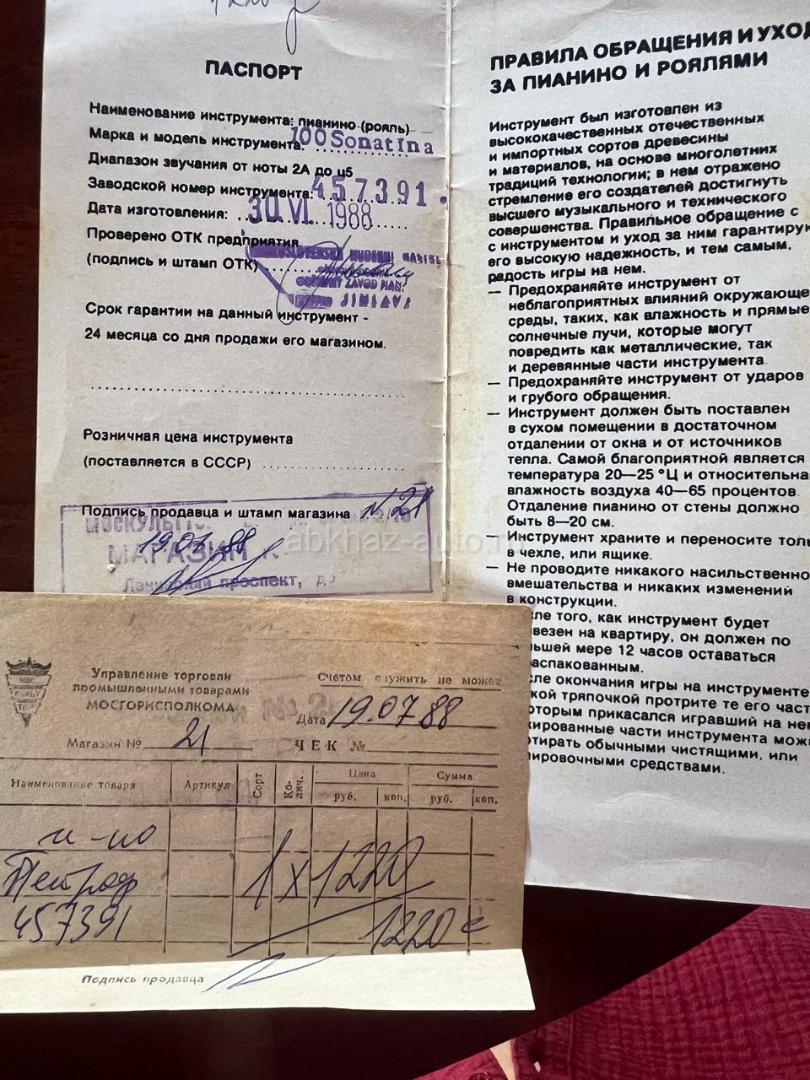 1220 р
ПАСПОРТ
Наименование инструмента: пианино (рояль)
Марка и модель инструмента: 100 Sonatina
Диапазон звучания от ноты 2А до ц5
Заводской номер инструмента: 457391.
Дата изготовления: 30 VI. 1988
Проверено ОТК предприятия
(подпись и штамп ОТК)
ZÁVOD
JIHLAVA
Срок гарантии на данный инструмент -
24 месяца со дня продажи его магазином.
Розничная цена инструмента
(поставляется в СССР)
Подпись продавца и штамп магазина N 21
19.07.88
МАГАЗИН
проспект, д.
ПРАВИЛА ОБРАЩЕНИЯ И УХОД
ЗА ПИАНИНО И РОЯЛЯМИ
Инструмент был изготовлен из
высококачественных отечественных
и импортных сортов древесины
и материалов, на основе многолетних
традиций технологии; в нем отражено
стремление его создателей достигнуть
высшего музыкального и технического
совершенства. Правильное обращение с
с инструментом и уход за ним гарантирую
его высокую надежность, и тем самым,
радость игры на нем.
— Предохраняйте инструмент от
неблагоприятных влияний окружающе
среды, таких, как влажность и прямые
солнечные лучи, которые могут
повредить как металлические, так
и деревянные части инструмента.
— Предохраняйте инструмент от ударов
и грубого обращения.
— Инструмент должен быть поставлен
в сухом помещении в достаточном
отдалении от окна и от источников
тепла. Самой благоприятной является
температура 20—25 °Ц и относительна
влажность воздуха 40—65 процентов.
Отдаление пианино от стены должно
быть 8—20 см.
— Инструмент храните и переносите толь
в чехле, или ящике.
— Не проводите никакого насильственно
вмешательства и никаких изменений
в конструкции.
сле того, как инструмент будет
везен на квартиру, он должен по
ьшей мере 12 часов оставаться
аспакованным.
сле окончания игры на инструменте
кой тряпочкой протрите те его част
оторым прикасался игравший на нем
кированные части инструмента мож
тирать обычными чистящими, или
лировочными средствами.
abkhaz-auto.r
Управление торговли
промышленными товарами
МОСГОРИСПОЛКОМА
Счетом служить не может
Дата 19.07.88
Магазин № 21 ЧЕК №
Наименование товара Артикул Сорт Колич. Цена Сумма
руб. коп. руб. коп.
п-но
Петроф 1 х 1220
457391 1220
Подпись продавца